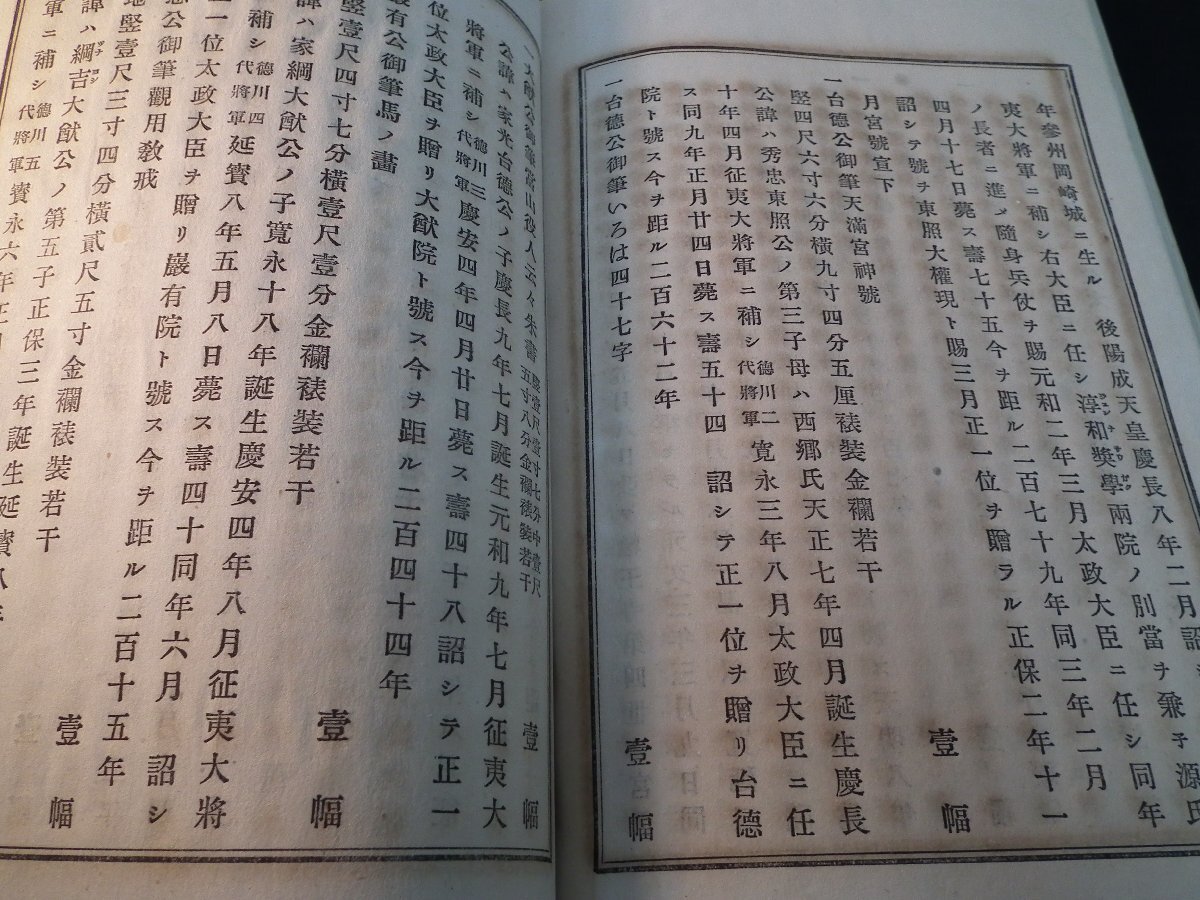 年參州岡崎城ニ生ル 後陽成天皇慶長八年二月詔
夷大將軍ニ補シ右大臣ニ任シ淳和奬學兩院ノ別當ヲ兼子源氏
ノ長者ニ進メ隨身兵仗ヲ賜元和二年三月太政大臣ニ任シ同年
四月十七日薨ス壽七十五今ヲ距ル二百七十九年同三年二月
詔シテ號ヲ東照大權現ト賜三月正一位ヲ贈ラル正保二年十一
月宮號宣下 壹幅
一台德公御筆天滿宮神號
竪四尺六寸六分橫九寸四分五厘裱裝金襴若干
公諱ハ秀忠東照公ノ第三子母ハ西鄕氏天正七年四月誕生慶長
十年四月征夷大將軍ニ補シ德川二代將軍寬永三年八月太政大臣ニ任
ス同九年正月廿四日薨ス壽五十四 詔シテ正一位ヲ贈リ台德
院ト號ス今ヲ距ル二百六十二年
一台德公御筆いろは四十七字 壹幅
一大猷公御筆富山役人云々朱書 竪壹尺壹寸七分巾壹尺五寸八分金襴裱裝若干 壹幅
公諱ハ家光台德公ノ子慶長九年七月誕生元和九年七月征夷大
將軍ニ補シ德川三代將軍慶安四年四月廿日薨ス壽四十八詔シテ正一
位太政大臣ヲ贈リ大猷院ト號ス今ヲ距ル二百四十四年
嚴有公御筆馬ノ畵 壹幅
竪壹尺四寸七分橫壹尺壹分金襴裱裝若干
諱ハ家綱大猷公ノ子寬永十八年誕生慶安四年八月征夷大將
補シ德川四代將軍延寶八年五月八日薨ス壽四十同年六月 詔シ
一位太政大臣ヲ贈リ嚴有院ト號ス今ヲ距ル二百十五年
公御筆觀用敎戒 壹幅
竪壹尺三寸四分橫貳尺五寸金襴裱裝若干
諱ハ綱吉大猷公ノ第五子正保三年誕生延寶八年
軍ニ補シ德川五代將軍寶永六年正月